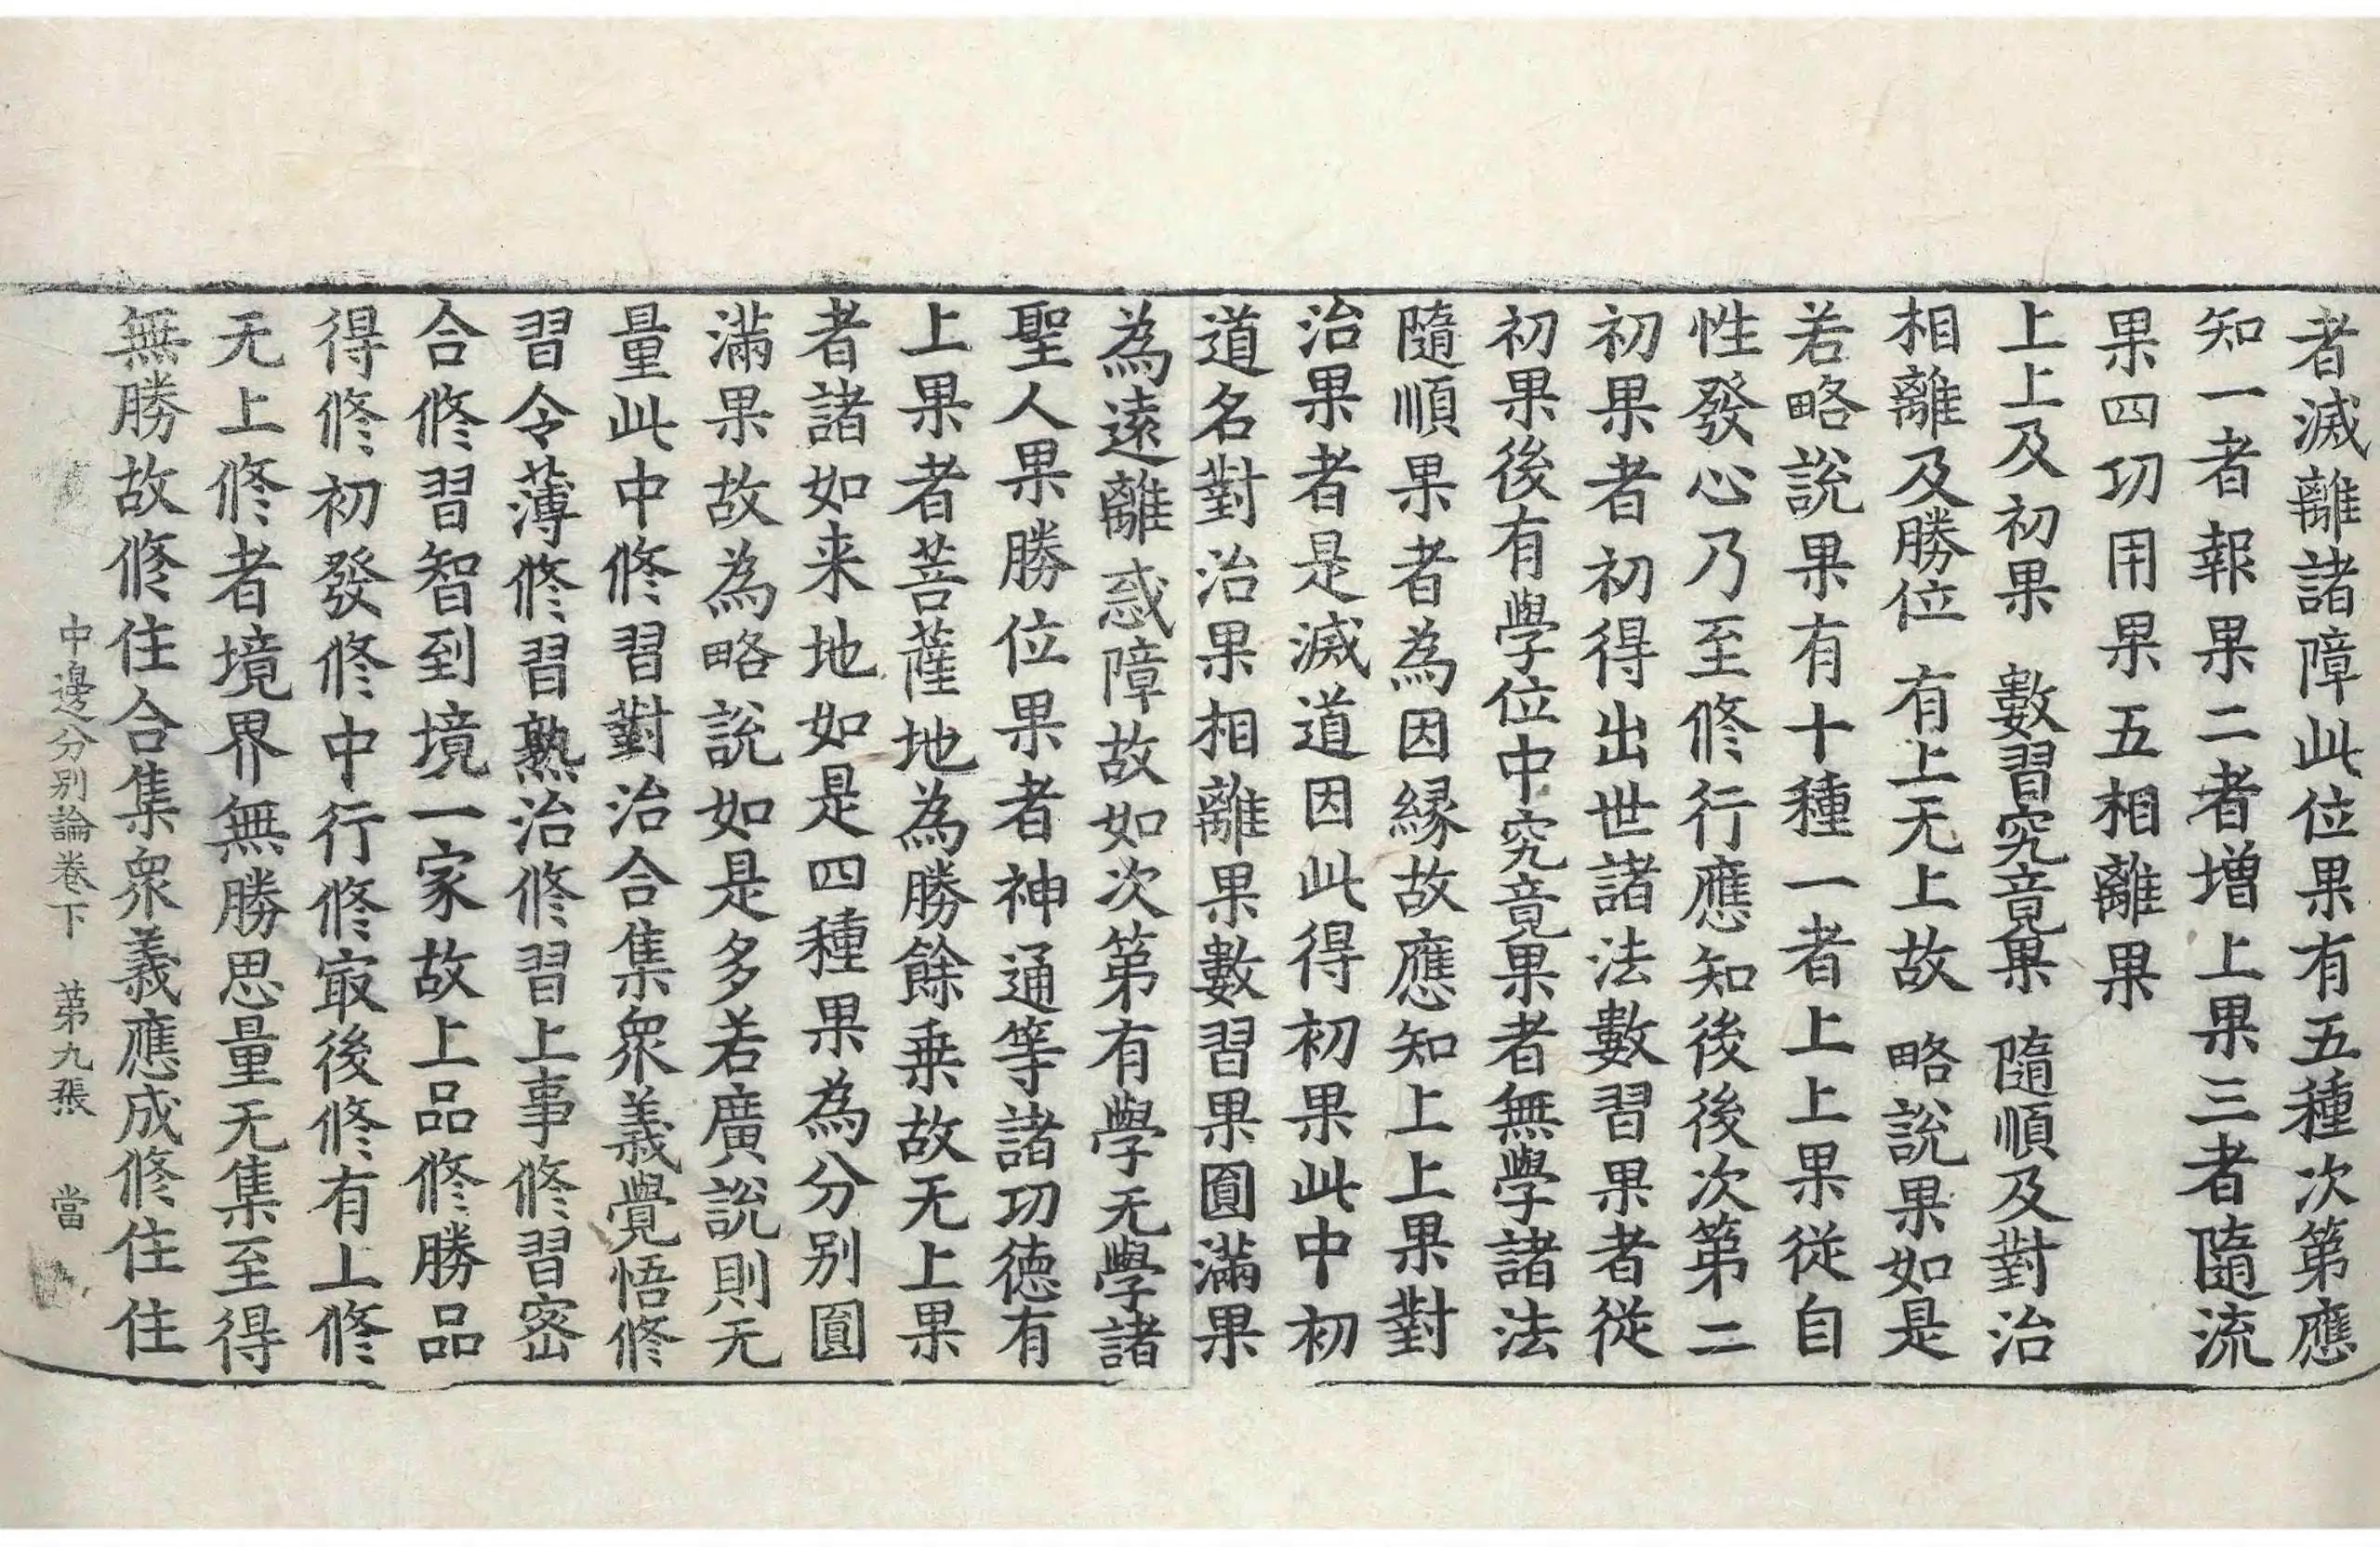 者滅離諸障此位果有五種次第應
知一者報果二者增上果三者隨流
果四功用果五相離果
上上及初果　數習究竟果　隨順及對治
相離及勝位　有上无上故　略說果如是
若略說果有十種一者上上果從自
性發心乃至修行應知後後次第二
初果者初得出世諸法數習果者從
初果後有學位中究竟果者無學諸法
隨順果者為因緣故應知上上果對
治果者是滅道因此得初果此中初
道名對治果相離果數習果圓滿果
為遠離惑障故如次第有學无學諸
聖人果勝位果者神通等諸功德有
上果者菩薩地為勝餘乗故无上果
者諸如来地如是四種果為分別圓
滿果故為略說如是多若廣說則无
量此中修習對治合集衆義覺悟修
習令薄修習熟治修習上事修習密
合修習智到境一家故上品修勝品
得修初發修中行修㝡後修有上修
无上修者境界無勝思量无集至得
無勝故修住合集衆義應成修住住
中邊分別論卷下　第九張　當